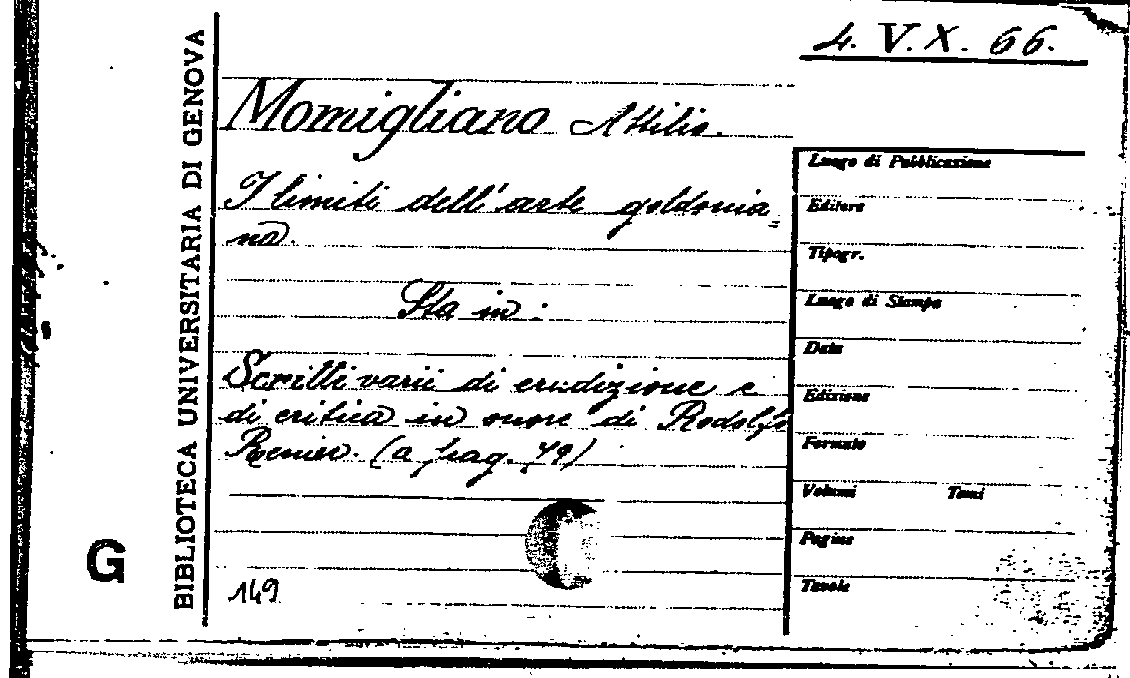 4. V. X. 66.
BIBLIOTECA UNIVERSITARIA DI GENOVA
G
Momigliano Attilio.
I limiti dell'arte goldonia=
na.
Sta in:
Scritti varii di erudizione e
di critica in onore di Rodolfo
Renier. (a pag. 79)
149
Luogo di Pubblicazione
Editore
Tipogr.
Luogo di Stampa
Data
Edizione
Formato
Volumi Tomi
Pagine
Tavole